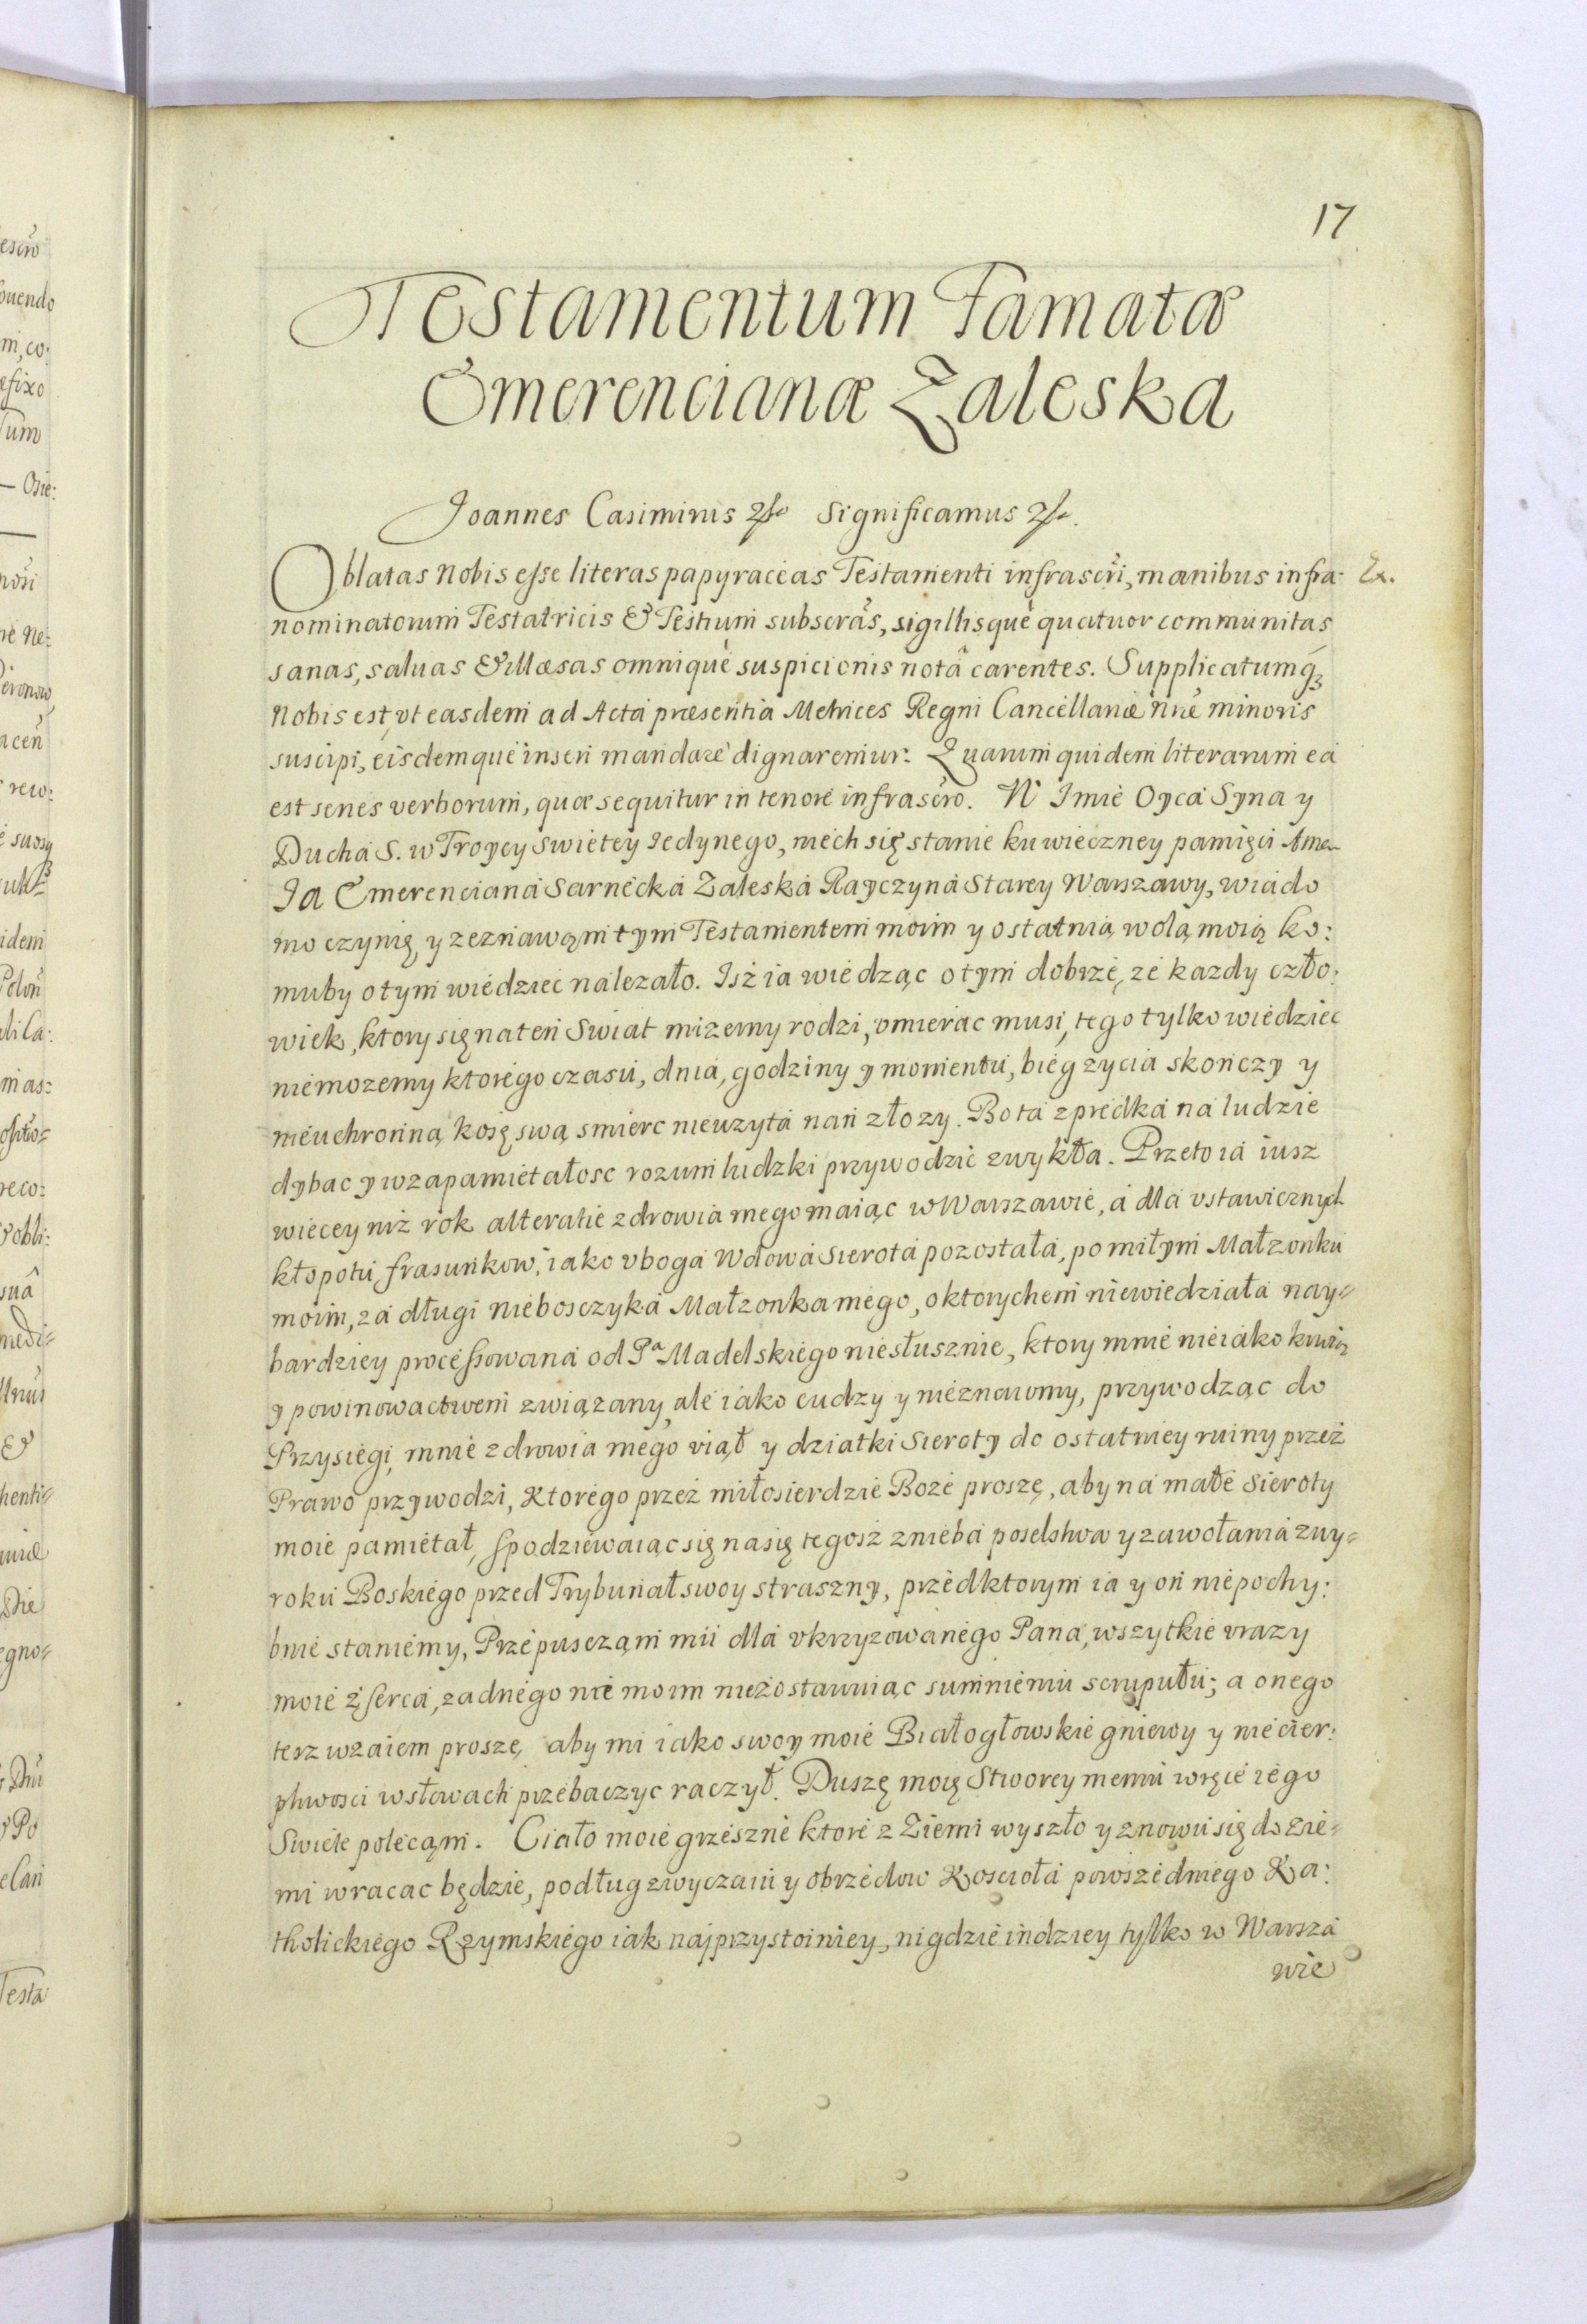 17
Testamentum Famatæ
Emerencianæ Zaleska
Joannes Casimirus Significamus
Oblatas Nobis esse literas papyraceas Testamenti infrascri, manibus infra- Ex.
nominatorum Testatricis & Testium subscras, sigillisque quatuor communitas
sanas, saluas & illæsas omnique suspicionis notâ carentes. Supplicatumq3
Nobis est, vt easdem ad Acta præsentia Metrices Regni Cancellariæ nræ minoris
suscipi, eisdemque inseri mandare dignaremur: Quarum quidem literarum ea
est series verborum, quæ sequitur in tenore infrascro. W Imie Oyca Syna y
Ducha S. w Troycy swietey Iedynego, niech się stanie ku wieczney pamięci Amen
Ia Emerenciana Sarnecka Zaleska Rayczyna Starey Warszawy, wiado
mo czynię, y zeznawąm tym Testamentem moim y ostatnią wolą moią ko:
muby o tym wiedziec nalezało. Isz ia wiedząc o tym dobrze, ze kazdy czło:
wiek, ktory się na ten Swiat mizerny rodzi, vmierac musi, tego tylko wiedziec
niemozemy ktorego czasu, dnia, godziny y momentu, bieg zycia skonczy y
nieuchronną kosę swą smierc nieuzyta nan złozy. Bo ta zpredka na ludzie
dybac y w zapamietałosc rozum ludzki przywodzic zwykła. Przeto ia iusz
wiecey niz rok alteratie zdrowia mego maiąc w Warszawie, a dla vstawicznych
kłopotu, frasunkow, iako vboga Wdowa Sierota pozostała, po miłym Małzonku
moim, za długi nieboszczyka Małzonka mego, o ktorychem niewiedziała nay=
bardziey processowana od Pa Madelskiego niesłusznie, ktory mnie nieiako krwią
y powinowactwem związany, ale iako cudzy y nieznaiomy, przywodząc do
Przysiegi, mnie zdrowia mego viął y dziatki Sieroty do ostatniey ruiny przez
Prawo przywodzi, Ktorego przez miłosierdzie Boze proszę, aby na małe Sieroty
moie pamietał, spodziewaiąc się na się tegosz z nieba poselstwa y zawołania z wy=
roku Boskiego przed Trybunał swoy straszny, przed ktorym ia y on niepochy:
bnie staniemy, Przepuscząm mu dla vkrzyzowanego Pana, wszytkie vrazy
moie z serca, zadnego nie moim niezostawuiąc sumnieniu scrupułu; a onego
tesz wzaiem proszę, aby mi iako swoy moie Białogłowskie gniewy y niecier:
pliwosci w słowach przebaczyc raczył. Duszę moię Stworcy memu w ręcie iego
Swiete polecąm. Ciało moie grzeszne ktore z Ziemi wyszło y znowu się do Zie=
mi wracac będzie, podług zwyczaiu y obrzedow Koscioła powszedniego Ka:
tholickiego Rzymskiego iak najprzystoiniey, nigdzie indziey tylko w Warsza
wie